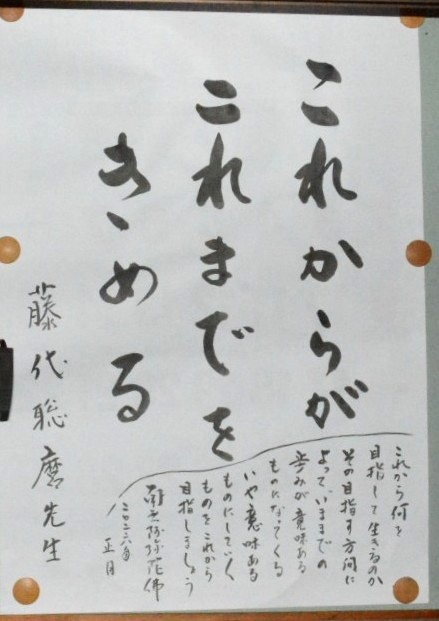 これからが
これまでを
きめる
藤代聡麿先生
これから何を
目指して生きるのか
その目指す方向に
よっていままでの
歩みが意味ある
ものになってくる
いや意味ある
ものにしていく
ものをこれから
目指しましょう
南无阿弥陀佛
二〇二六年
正月